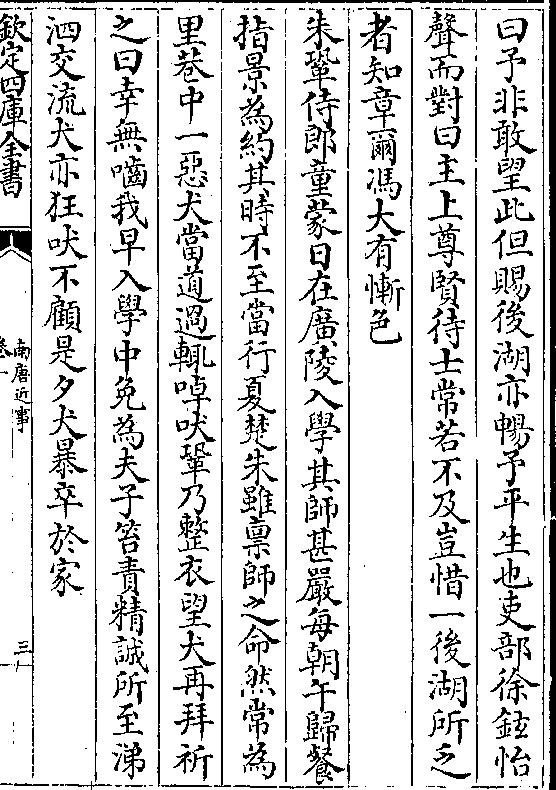 曰予非敢望此但賜後湖亦暢予平生也吏部徐鉉怡
聲而對曰主上尊賢待士常若不及豈惜一後湖所乏
者知章爾馮大有慚色
朱鞏侍郎童蒙日在廣陵入學其師甚嚴每朝午歸餐
指景為約其時不至當行夏楚朱雖禀師之命然常為
里巷中一惡犬當道過輒啅吠鞏乃整衣望犬再拜祈
之曰幸無嚙我早入學中免為夫子笞責精誠所至涕
泗交流犬亦狂吠不顧是夕犬暴卒於家
欽定四庫全書
南唐近事
卷一
三